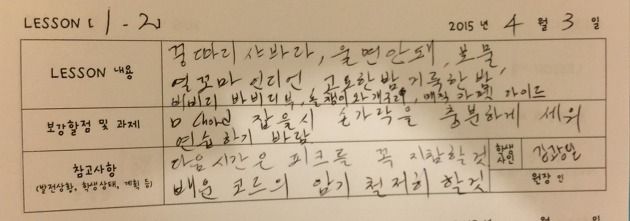 LESSON [ 1-2 ] 2015 년 4 월 3 일
LESSON 내용
꿍따리 샤바라, 울면안돼, 보물
열꼬마 인디언 고요한밤 거룩한밤
비비디 바비디부, 올챙이와개구리, 매직 카펫 라이드
보강할점 및 과제
D 잡을시 손가락을 충분하게 세워
연습하기 바람
참고사항
(발전상황, 학생상태, 계획 등)
다음시간은 피크를 꼭 지참할것
배운 코드의 암기 철저히 할것
학생
사인
원장 인